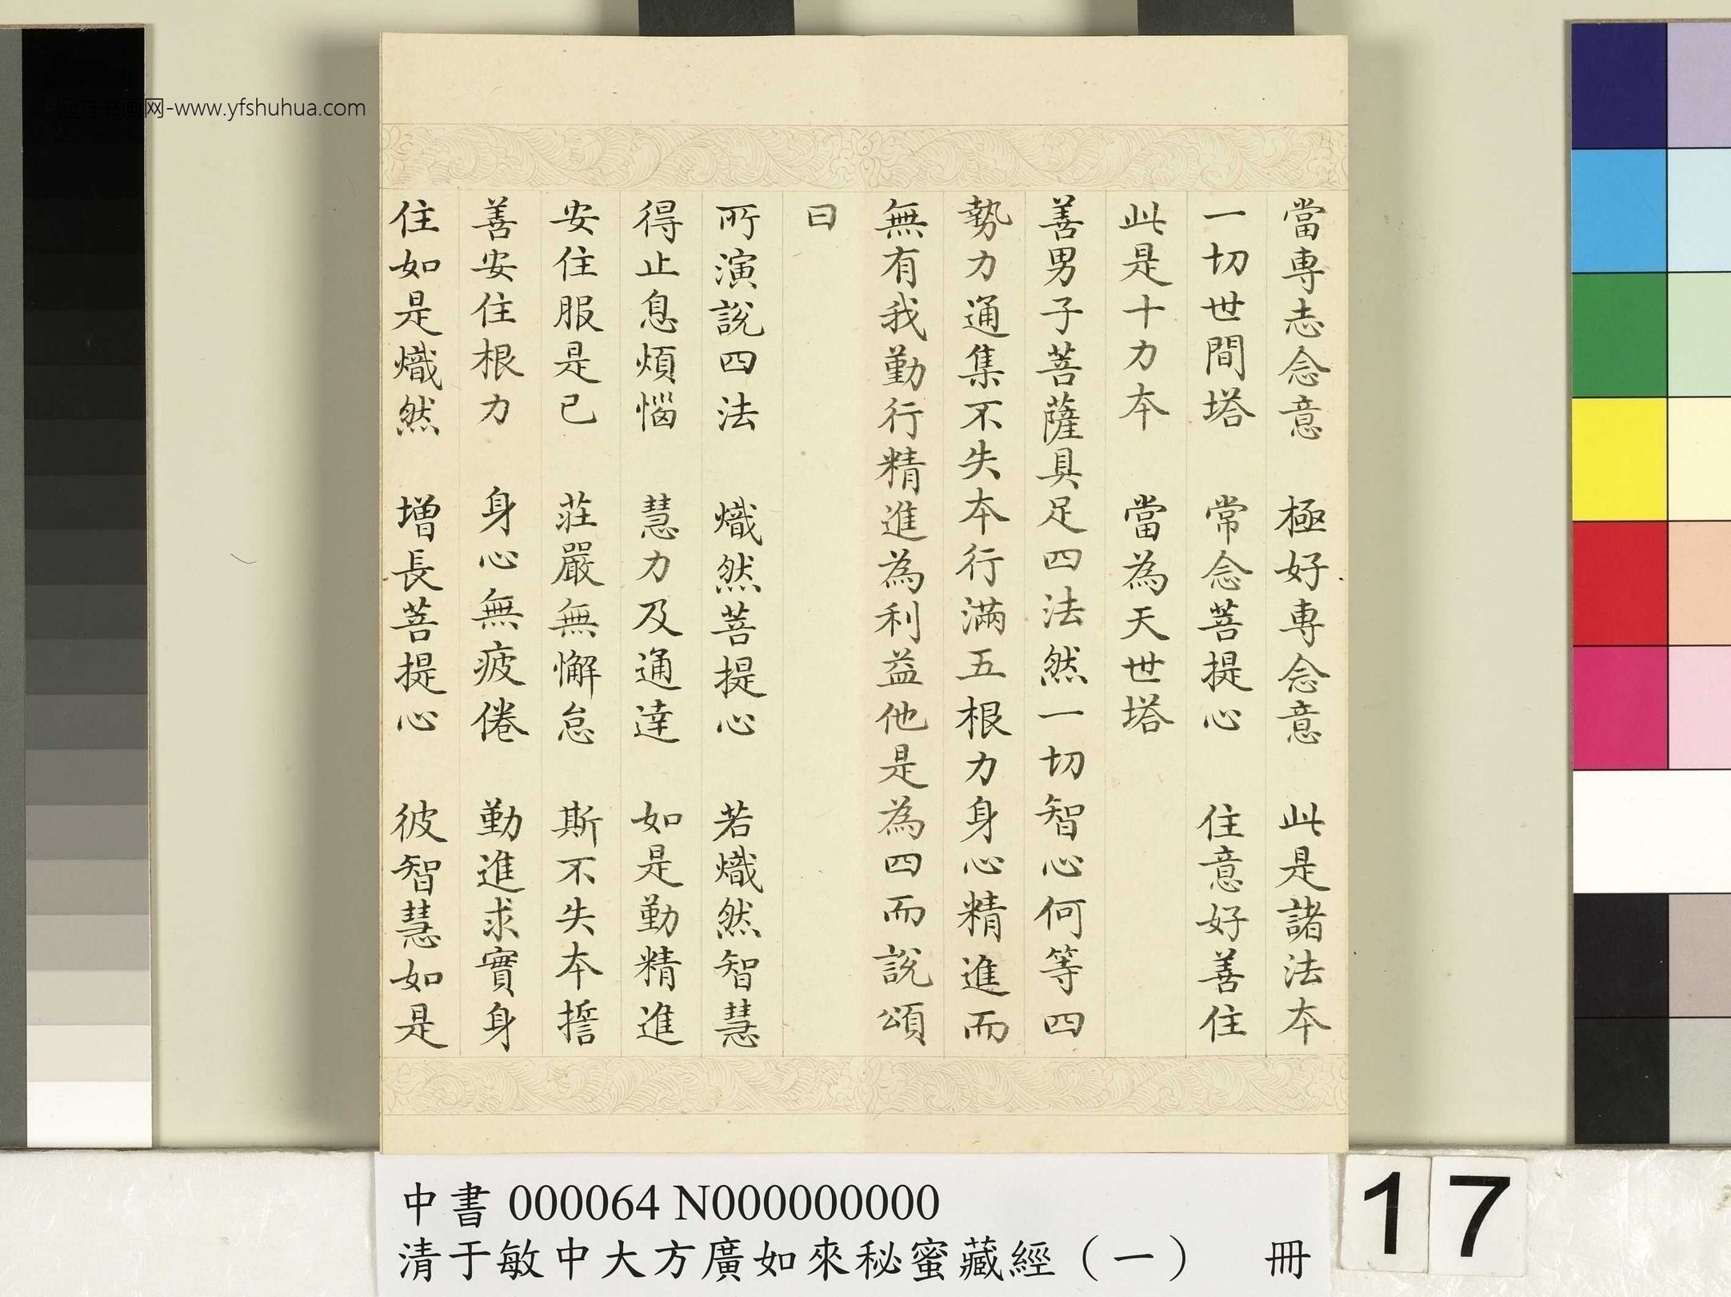 當專志念意　極好專念意　此是諸法本
一切世間塔　常念菩提心　住意好善住
此是十力本　當為天世塔
善男子菩薩具足四法然一切智心何等四
勢力通集不失本行滿五根力身心精進而
無有我勤行精進為利益他是為四而說頌
曰
所演說四法　熾然菩提心　若熾然智慧
得止息煩惱　慧力及通達　如是勤精進
安住服是已　莊嚴無懈怠　斯不失本誓
善安住根力　身心無疲倦　勤進求實身
住如是熾然　增長菩提心　彼智慧如是
中書 000064 N000000000
清于敏中大方廣如來秘蜜藏經（一）　冊
17
网-www.yfshuhua.com